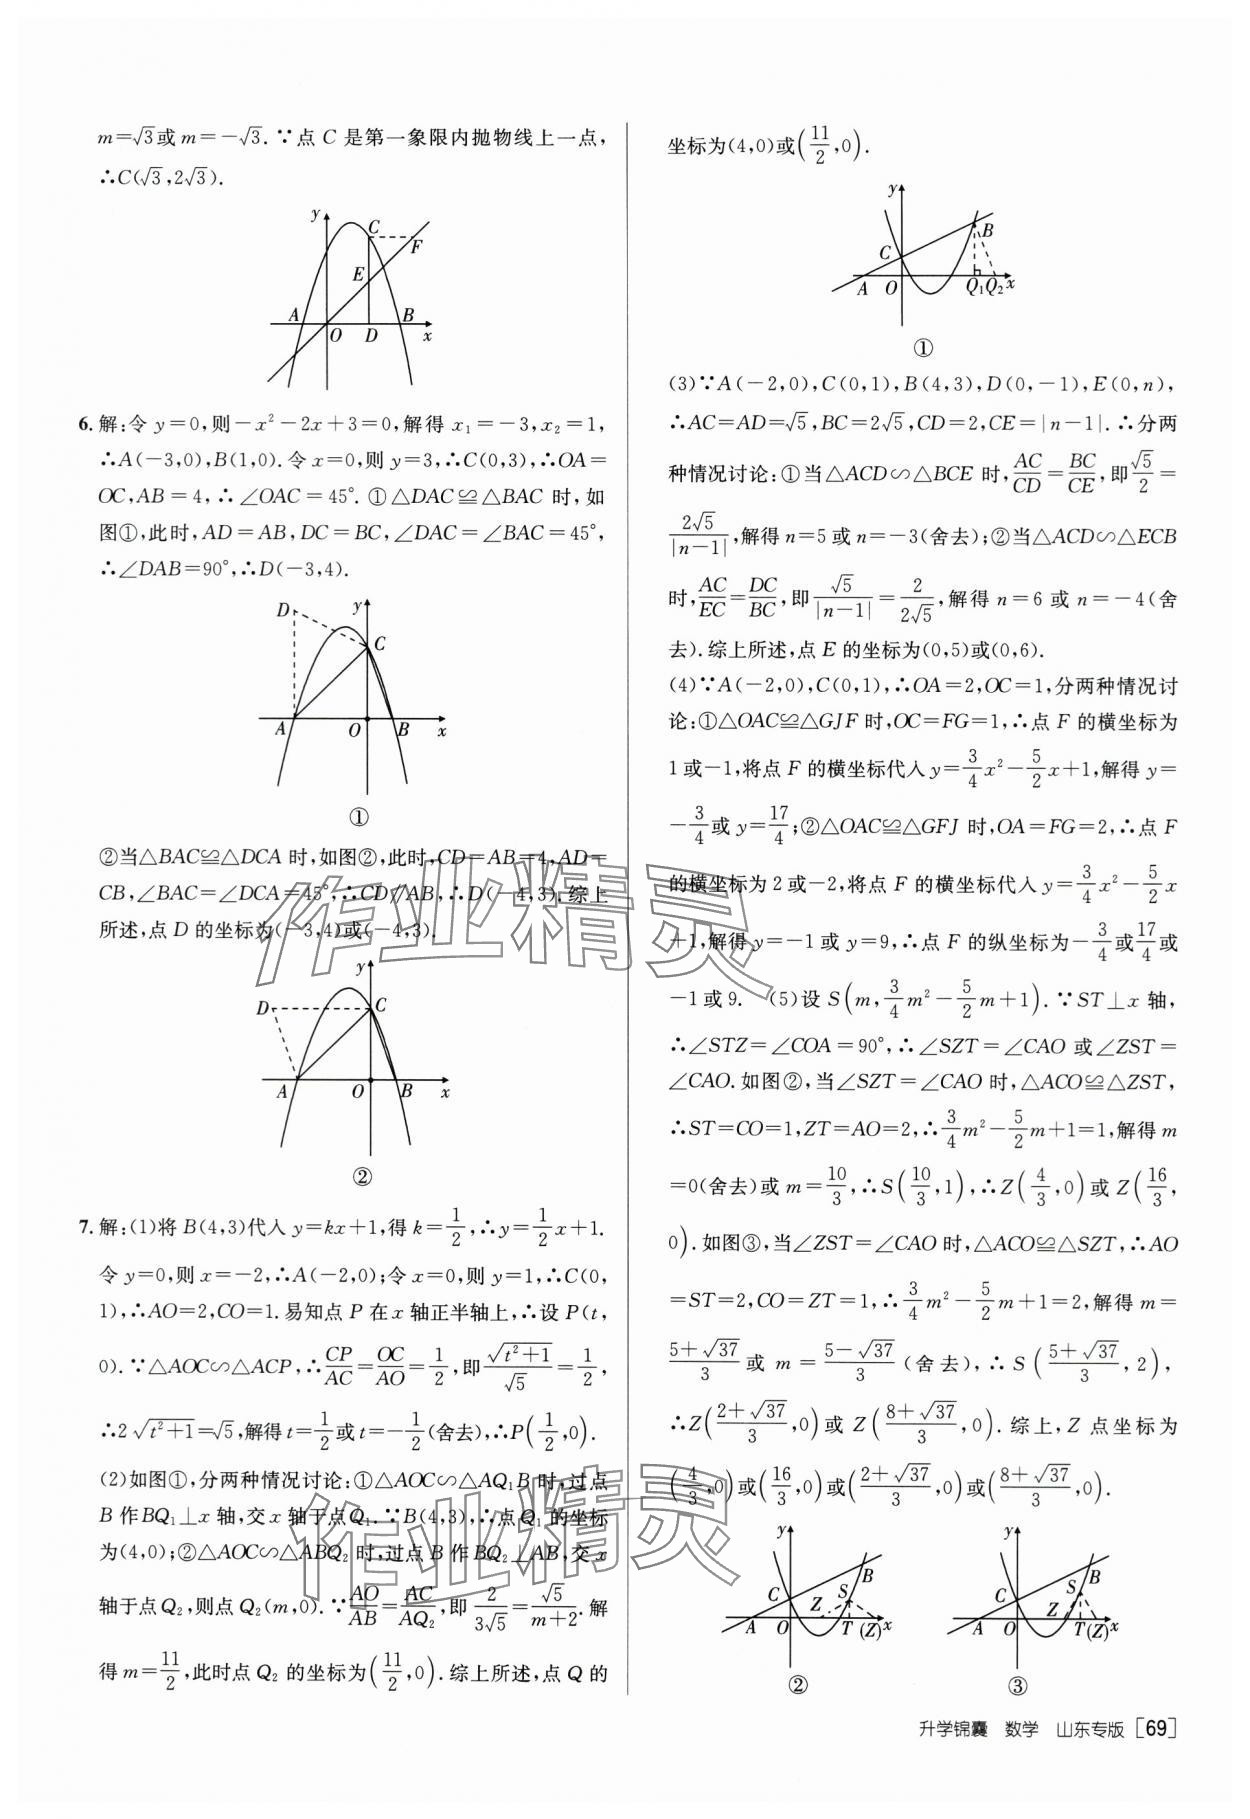 m=√3或m=-√3.∵点C是第一象限内抛物线上一点,
∴C(√3,2√3).
y
C
F
E
A
B
O
D
x
6.解:令y=0,则-x²-2x+3=0,解得x₁=-3,x₂=1,
∴A(-3,0),B(1,0).令x=0,则y=3,∴C(0,3),∴OA=
OC,AB=4,∴∠OAC=45°.①△DAC≌△BAC时,如
图①,此时,AD=AB,DC=BC,∠DAC=∠BAC=45°,
∴∠DAB=90°,∴D(-3,4).
D
y
C
A
O
B
x
①
②当△BAC≌△DCA时,如图②,此时,CD=AB=4,AD=
CB,∠BAC=∠DCA=45°,∴CD∥AB,∴D(-4,3).综上
所述,点D的坐标为(-3,4)或(-4,3).
y
D
C
A
O
B
x
②
7.解:(1)将B(4,3)代入y=kx+1,得k=1/2,∴y=1/2x+1.
令y=0,则x=-2,∴A(-2,0);令x=0,则y=1,∴C(0,
1),∴AO=2,CO=1.易知点P在x轴正半轴上,∴设P(t,
0).∵△AOC∽△ACP,∴CP/AC=OC/AO=1/2,即√(t²+1)/√5=1/2,
∴2√(t²+1)=√5,解得t=1/2或t=-1/2(舍去),∴P(1/2,0).
(2)如图①,分两种情况讨论:①△AOC∽△AQ₁B时,过点
B作BQ₁⊥x轴,交x轴于点Q₁.∵B(4,3),∴点Q₁的坐标
为(4,0);②△AOC∽△ABQ₂时,过点B作BQ₂⊥AB,交x
轴于点Q₂,则点Q₂(m,0).∵AO/AB=AC/AQ₂,即2/3√5=√5/m+2.解
得m=11/2,此时点Q₂的坐标为(11/2,0).综上所述,点Q的
坐标为(4,0)或(11/2,0).
y
B
C
A
O
Q₁Q₂x
①
(3)∵A(-2,0),C(0,1),B(4,3),D(0,-1),E(0,n),
∴AC=AD=√5,BC=2√5,CD=2,CE=|n-1|.∴分两
种情况讨论:①当△ACD∽△BCE时,AC/CD=BC/CE,即√5/2=
2√5/|n-1|,解得n=5或n=-3(舍去);②当△ACD∽△ECB
时,AC/EC=DC/BC,即√5/|n-1|=2/2√5,解得n=6或n=-4(舍
去).综上所述,点E的坐标为(0,5)或(0,6).
(4)∵A(-2,0),C(0,1),∴OA=2,OC=1,分两种情况讨
论:①△OAC≌△GJF时,OC=FG=1,∴点F的横坐标为
1或-1,将点F的横坐标代入y=3/4x²-5/2x+1,解得y=
-3/4或y=17/4;②△OAC≌△GFJ时,OA=FG=2,∴点F
的横坐标为2或-2,将点F的横坐标代入y=3/4x²-5/2x
+1,解得y=-1或y=9,∴点F的纵坐标为-3/4或17/4或
-1或9. (5)设S(m,3/4m²-5/2m+1).∵ST⊥x轴,
∴∠STZ=∠COA=90°,∴∠SZT=∠CAO或∠ZST=
∠CAO.如图②,当∠SZT=∠CAO时,△ACO≌△ZST,
∴ST=CO=1,ZT=AO=2,∴3/4m²-5/2m+1=1,解得m
=0(舍去)或m=10/3,∴S(10/3,1),∴Z(4/3,0)或Z(16/3,
0).如图③,当∠ZST=∠CAO时,△ACO≌△SZT,∴AO
=ST=2,CO=ZT=1,∴3/4m²-5/2m+1=2,解得m=
5+√37/3或m=5-√37/3(舍去),∴S(5+√37/3,2),
∴Z(2+√37/3,0)或Z(8+√37/3,0).综上,Z点坐标为
(4/3,0)或(16/3,0)或(2+√37/3,0)或(8+√37/3,0).
y
B
S
C
Z
A
O
T(Z)x
②
y
B
S
C
Z
A
O
T(Z)x
③
作业精灵
作业精灵
升学锦囊 数学 山东专版[69]